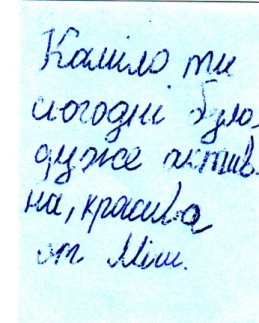 Каміла ти
сьогодні була
дуже актив-
на, красива
от Міш.